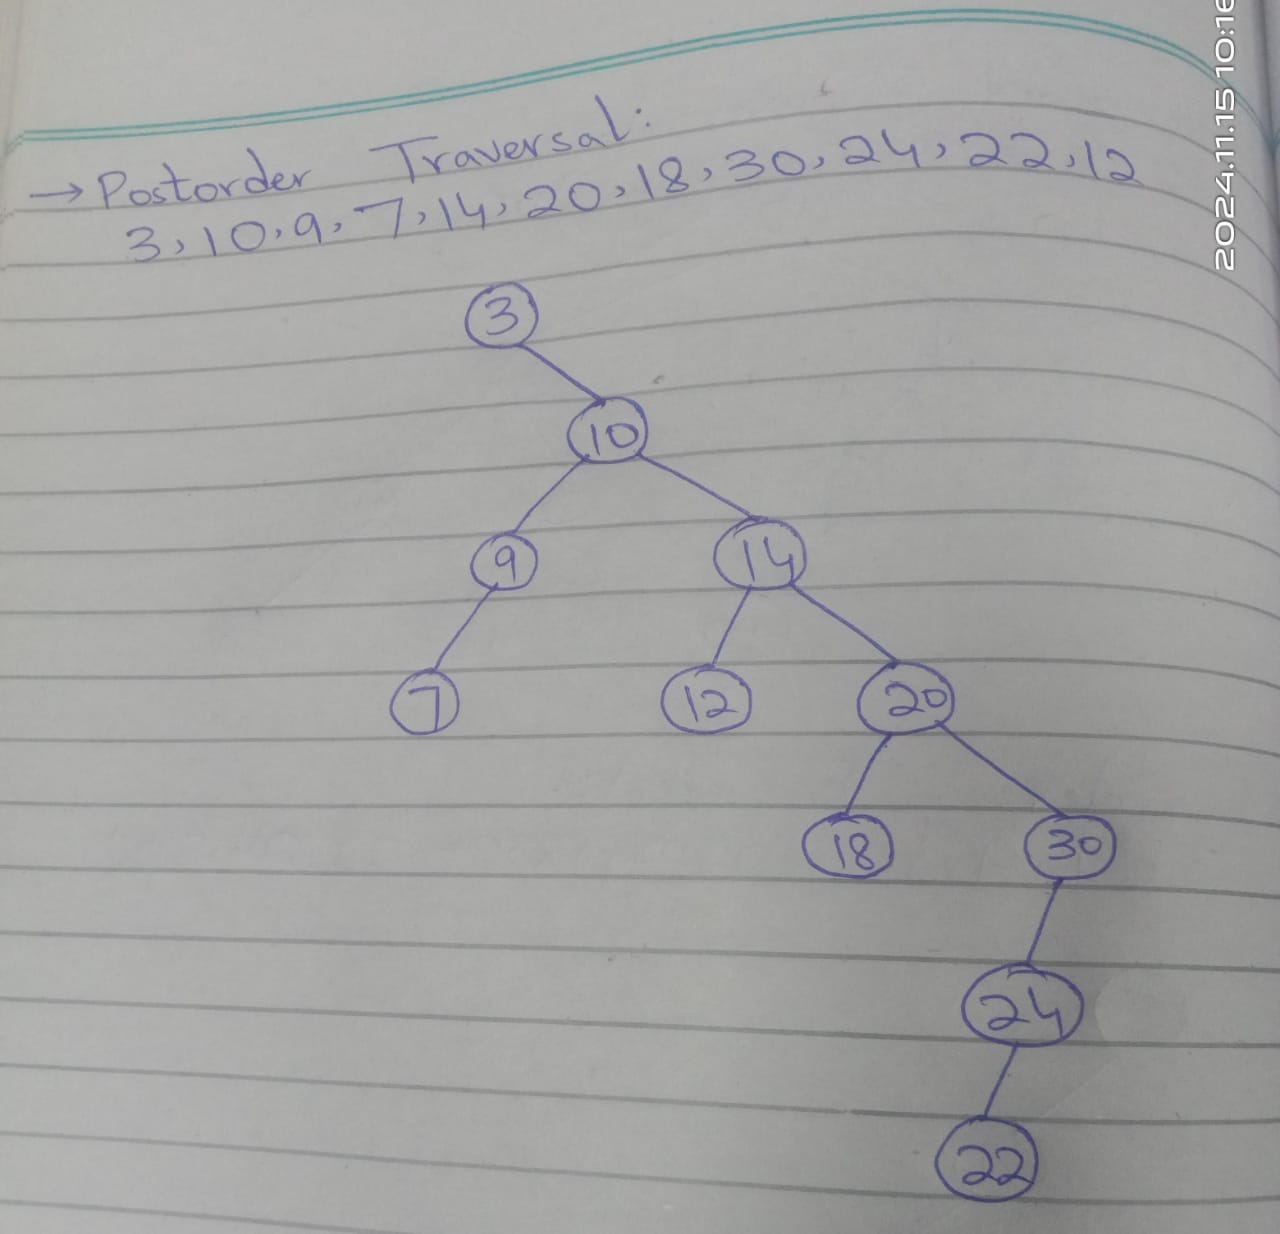 → Postorder Traversal:
3, 10, 9, 7, 14, 20, 18, 30, 24, 22, 12
3
10
9 14
7 12 20
18 30
24
22
2024.11.15 10:16